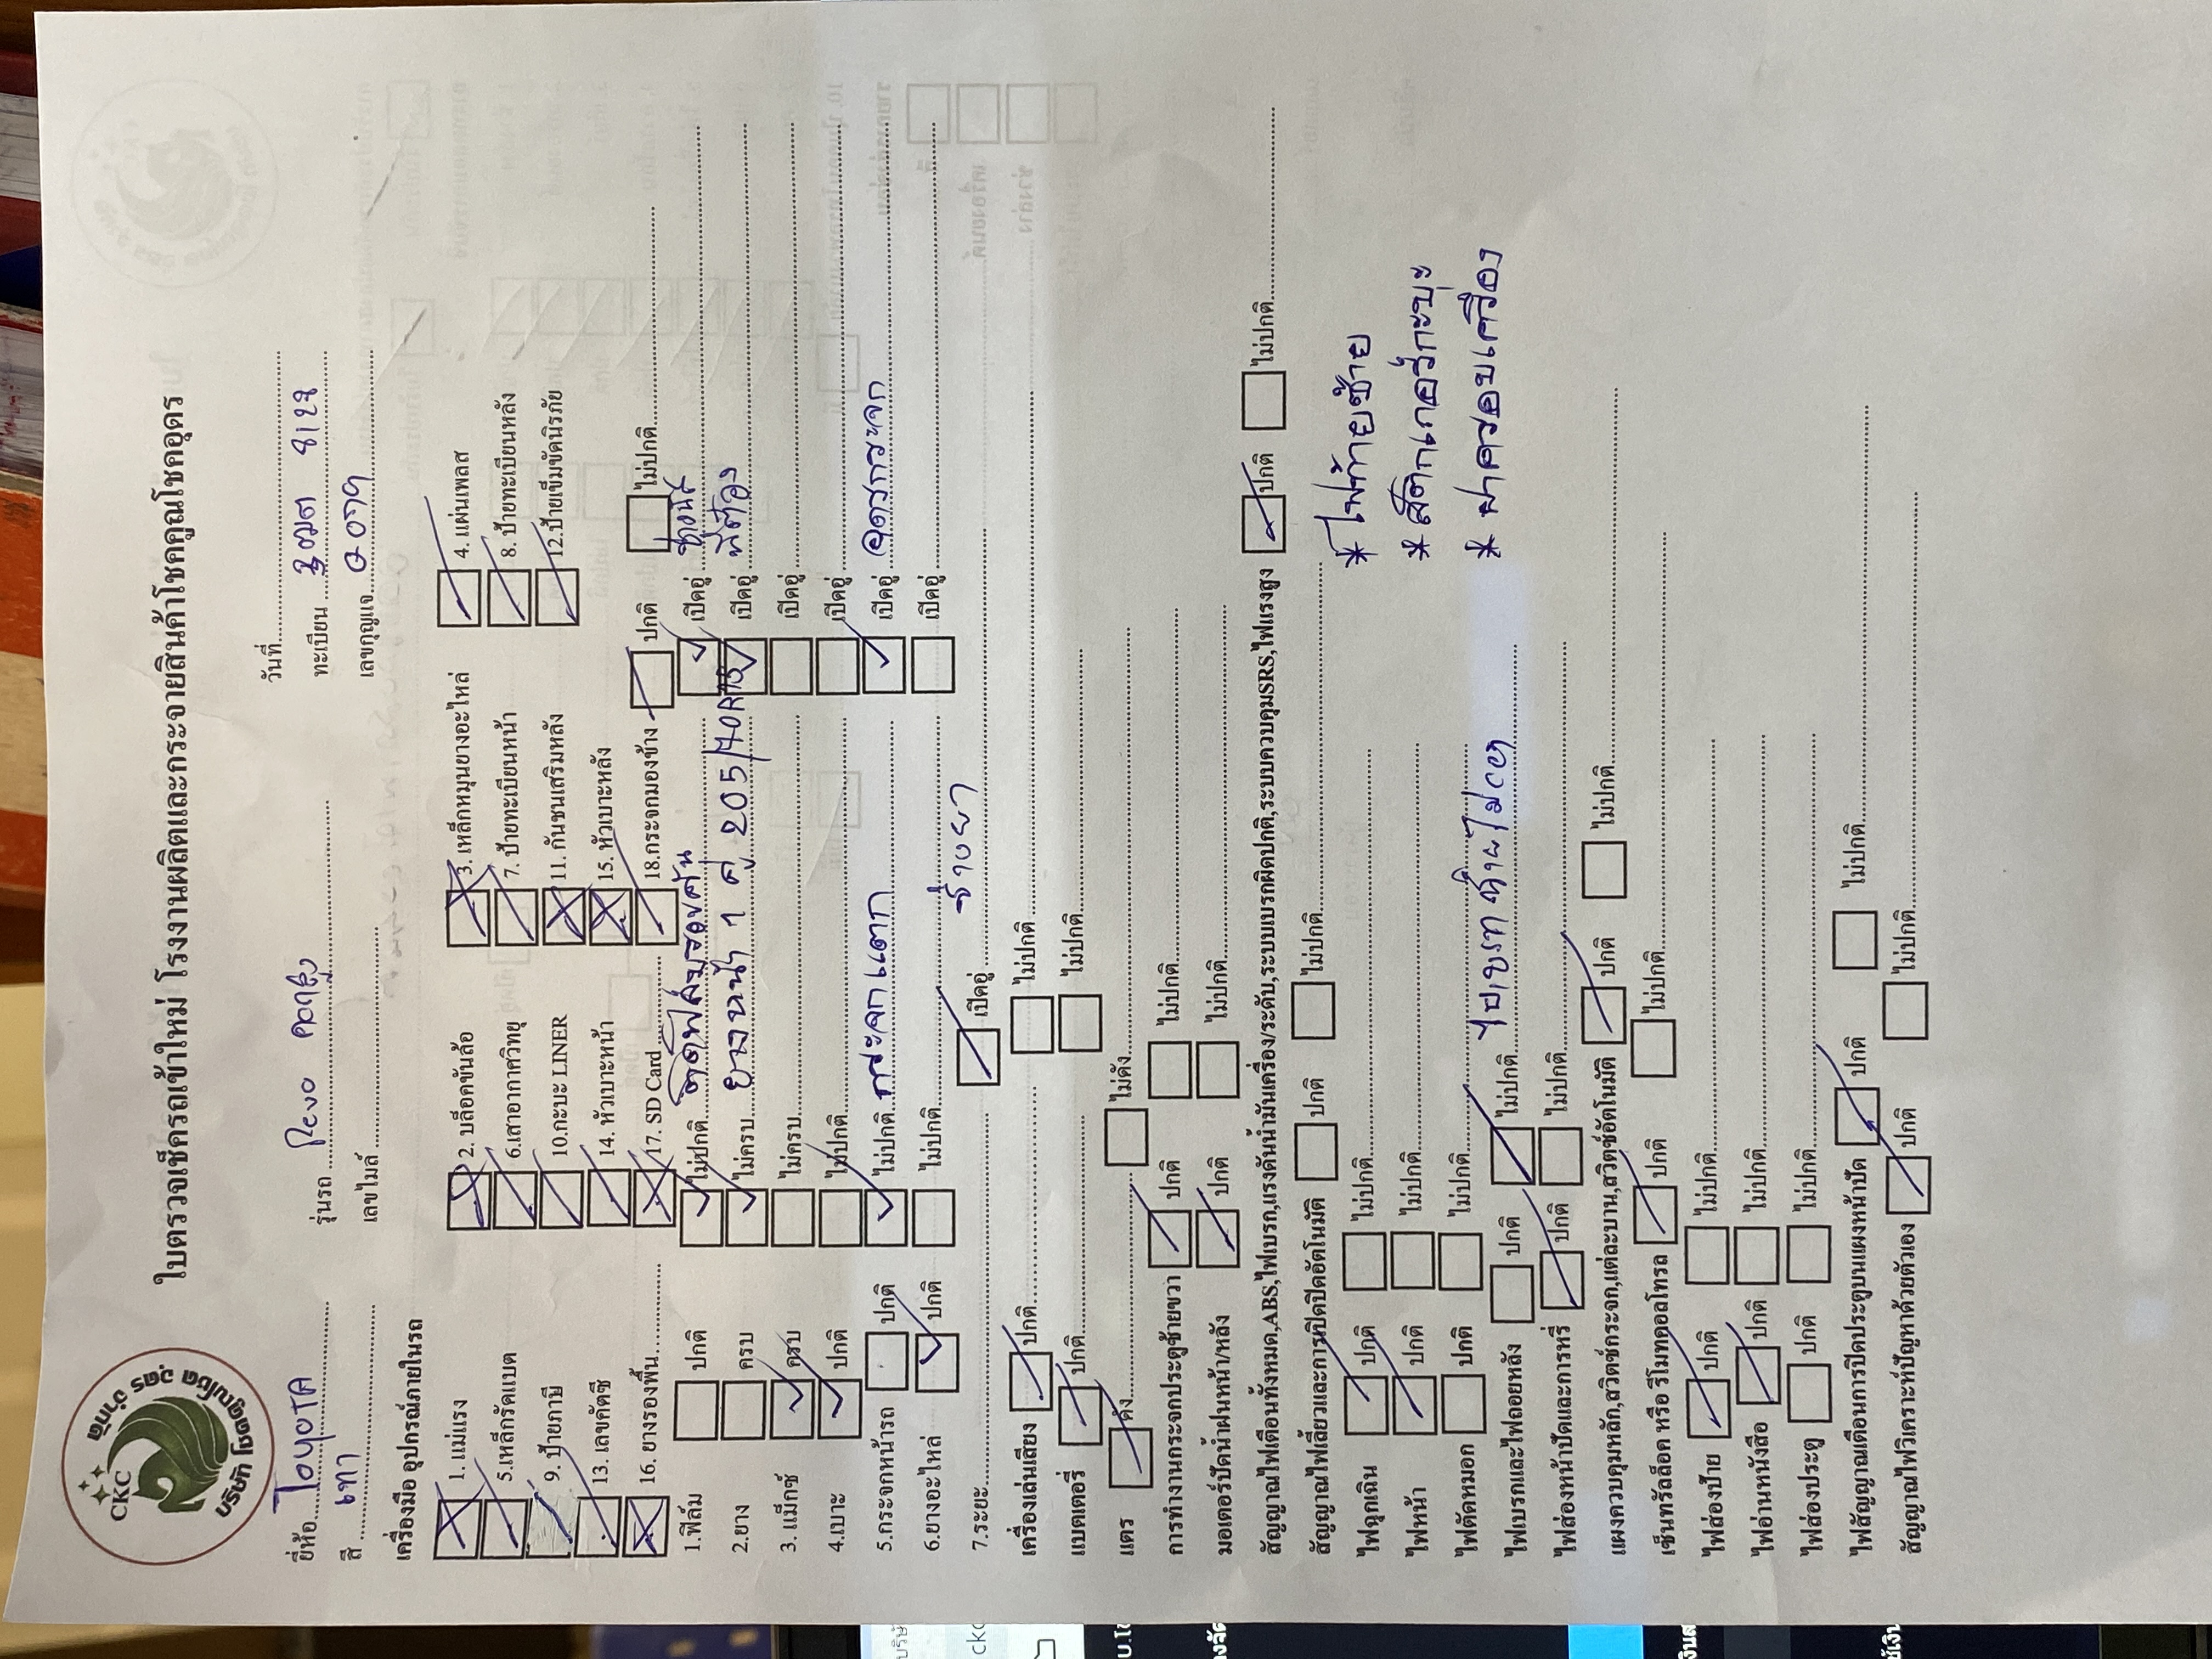 CKC
บริษัท คูณโชค อุดร จำกัด
ใบตรวจเช็ครถเข้าใหม่ โรงงานผลิตและกระจายสินค้าโชคคูณโชคอุดร
วันที่
ยี่ห้อ TOYOTA รุ่นรถ Revo ทะเบียน
สี เทา เลขไมล์ เลขกุญแจ
เครื่องมือ อุปกรณ์ภายในรถ
1. แม่แรง 2. บล็อคขันล้อ 3. เหล็กหมุนยางอะไหล่ 4. แผ่นเพลส
5.เหล็กรัดแบต 6.เสาอากาศวิทยุ 7. ป้ายทะเบียนหน้า 8. ป้ายทะเบียนหลัง
9. ป้ายภาษี 10.กะบะ LINER 11. กันชนเสริมหลัง 12.ป้ายเข็มขัดนิรภัย
13. เลขคัตซี 14. หัวเบาะหน้า 15. หัวเบาะหลัง
16. ยางรองพื้น 17. SD Card 18.กระจกมองข้าง ปกติ ไม่ปกติ
1.ฟิล์ม ปกติ ไม่ปกติ ติดฟิล์มรอบคัน เปิดคู่
2.ยาง ครบ ไม่ครบ ยางหน้า 1 คู่ 205/70R15 เปิดคู่ พี่ต๋อง
3. แม็กซ์ ครบ ไม่ครบ เปิดคู่
4.เบาะ ปกติ ไม่ปกติ เปิดคู่
5.กระจกหน้ารถ ปกติ ไม่ปกติ กระจกแตก เปิดคู่
6.ยางอะไหล่ ปกติ ไม่ปกติ เปิดคู่
7.ระยะ เปิดคู่ ช่างยา
เครื่องเล่นเสียง ปกติ ไม่ปกติ
แบตเตอรี่ ปกติ ไม่ปกติ
แตร ดัง ไม่ดัง
การทำงานกระจกประตูซ้ายขวา ปกติ ไม่ปกติ
มอเตอร์ปัดน้ำฝนหน้า/หลัง ปกติ ไม่ปกติ
สัญญาณไฟเตือนทั้งหมด,ABS,ไฟเบรก,แรงดันน้ำมันเครื่อง/ระดับ,ระบบเบรกผิดปกติ,ระบบควบคุมSRS,ไฟแรงสูง ปกติ ไม่ปกติ
สัญญาณไฟเลี้ยวและการเปิดปิดอัตโนมัติ ปกติ ไม่ปกติ
ไฟฉุกเฉิน ปกติ ไม่ปกติ * ไฟท้ายซ้าย
ไฟหน้า ปกติ ไม่ปกติ * สติกเกอร์กะบะ
ไฟตัดหมอก ปกติ ไม่ปกติ * ฝาครอบเครื่อง
ไฟเบรกและไฟถอยหลัง ปกติ ไม่ปกติ
ไฟส่องหน้าปัดและการหรี่ ปกติ ไม่ปกติ
แผงควบคุมหลัก,สวิตช์กระจก,แต่ละบาน,สวิตช์อัตโนมัติ ปกติ ไม่ปกติ
เซ็นทรัลล็อค หรือ รีโมทคอลโทรล ปกติ ไม่ปกติ
ไฟส่องป้าย ปกติ ไม่ปกติ
ไฟอ่านหนังสือ ปกติ ไม่ปกติ
ไฟส่องประตู ปกติ ไม่ปกติ
ไฟสัญญาณเตือนการปิดประตูบนแผงหน้าปัด ปกติ ไม่ปกติ
สัญญาณไฟวิเคราะห์ปัญหาด้วยตัวเอง ปกติ ไม่ปกติ